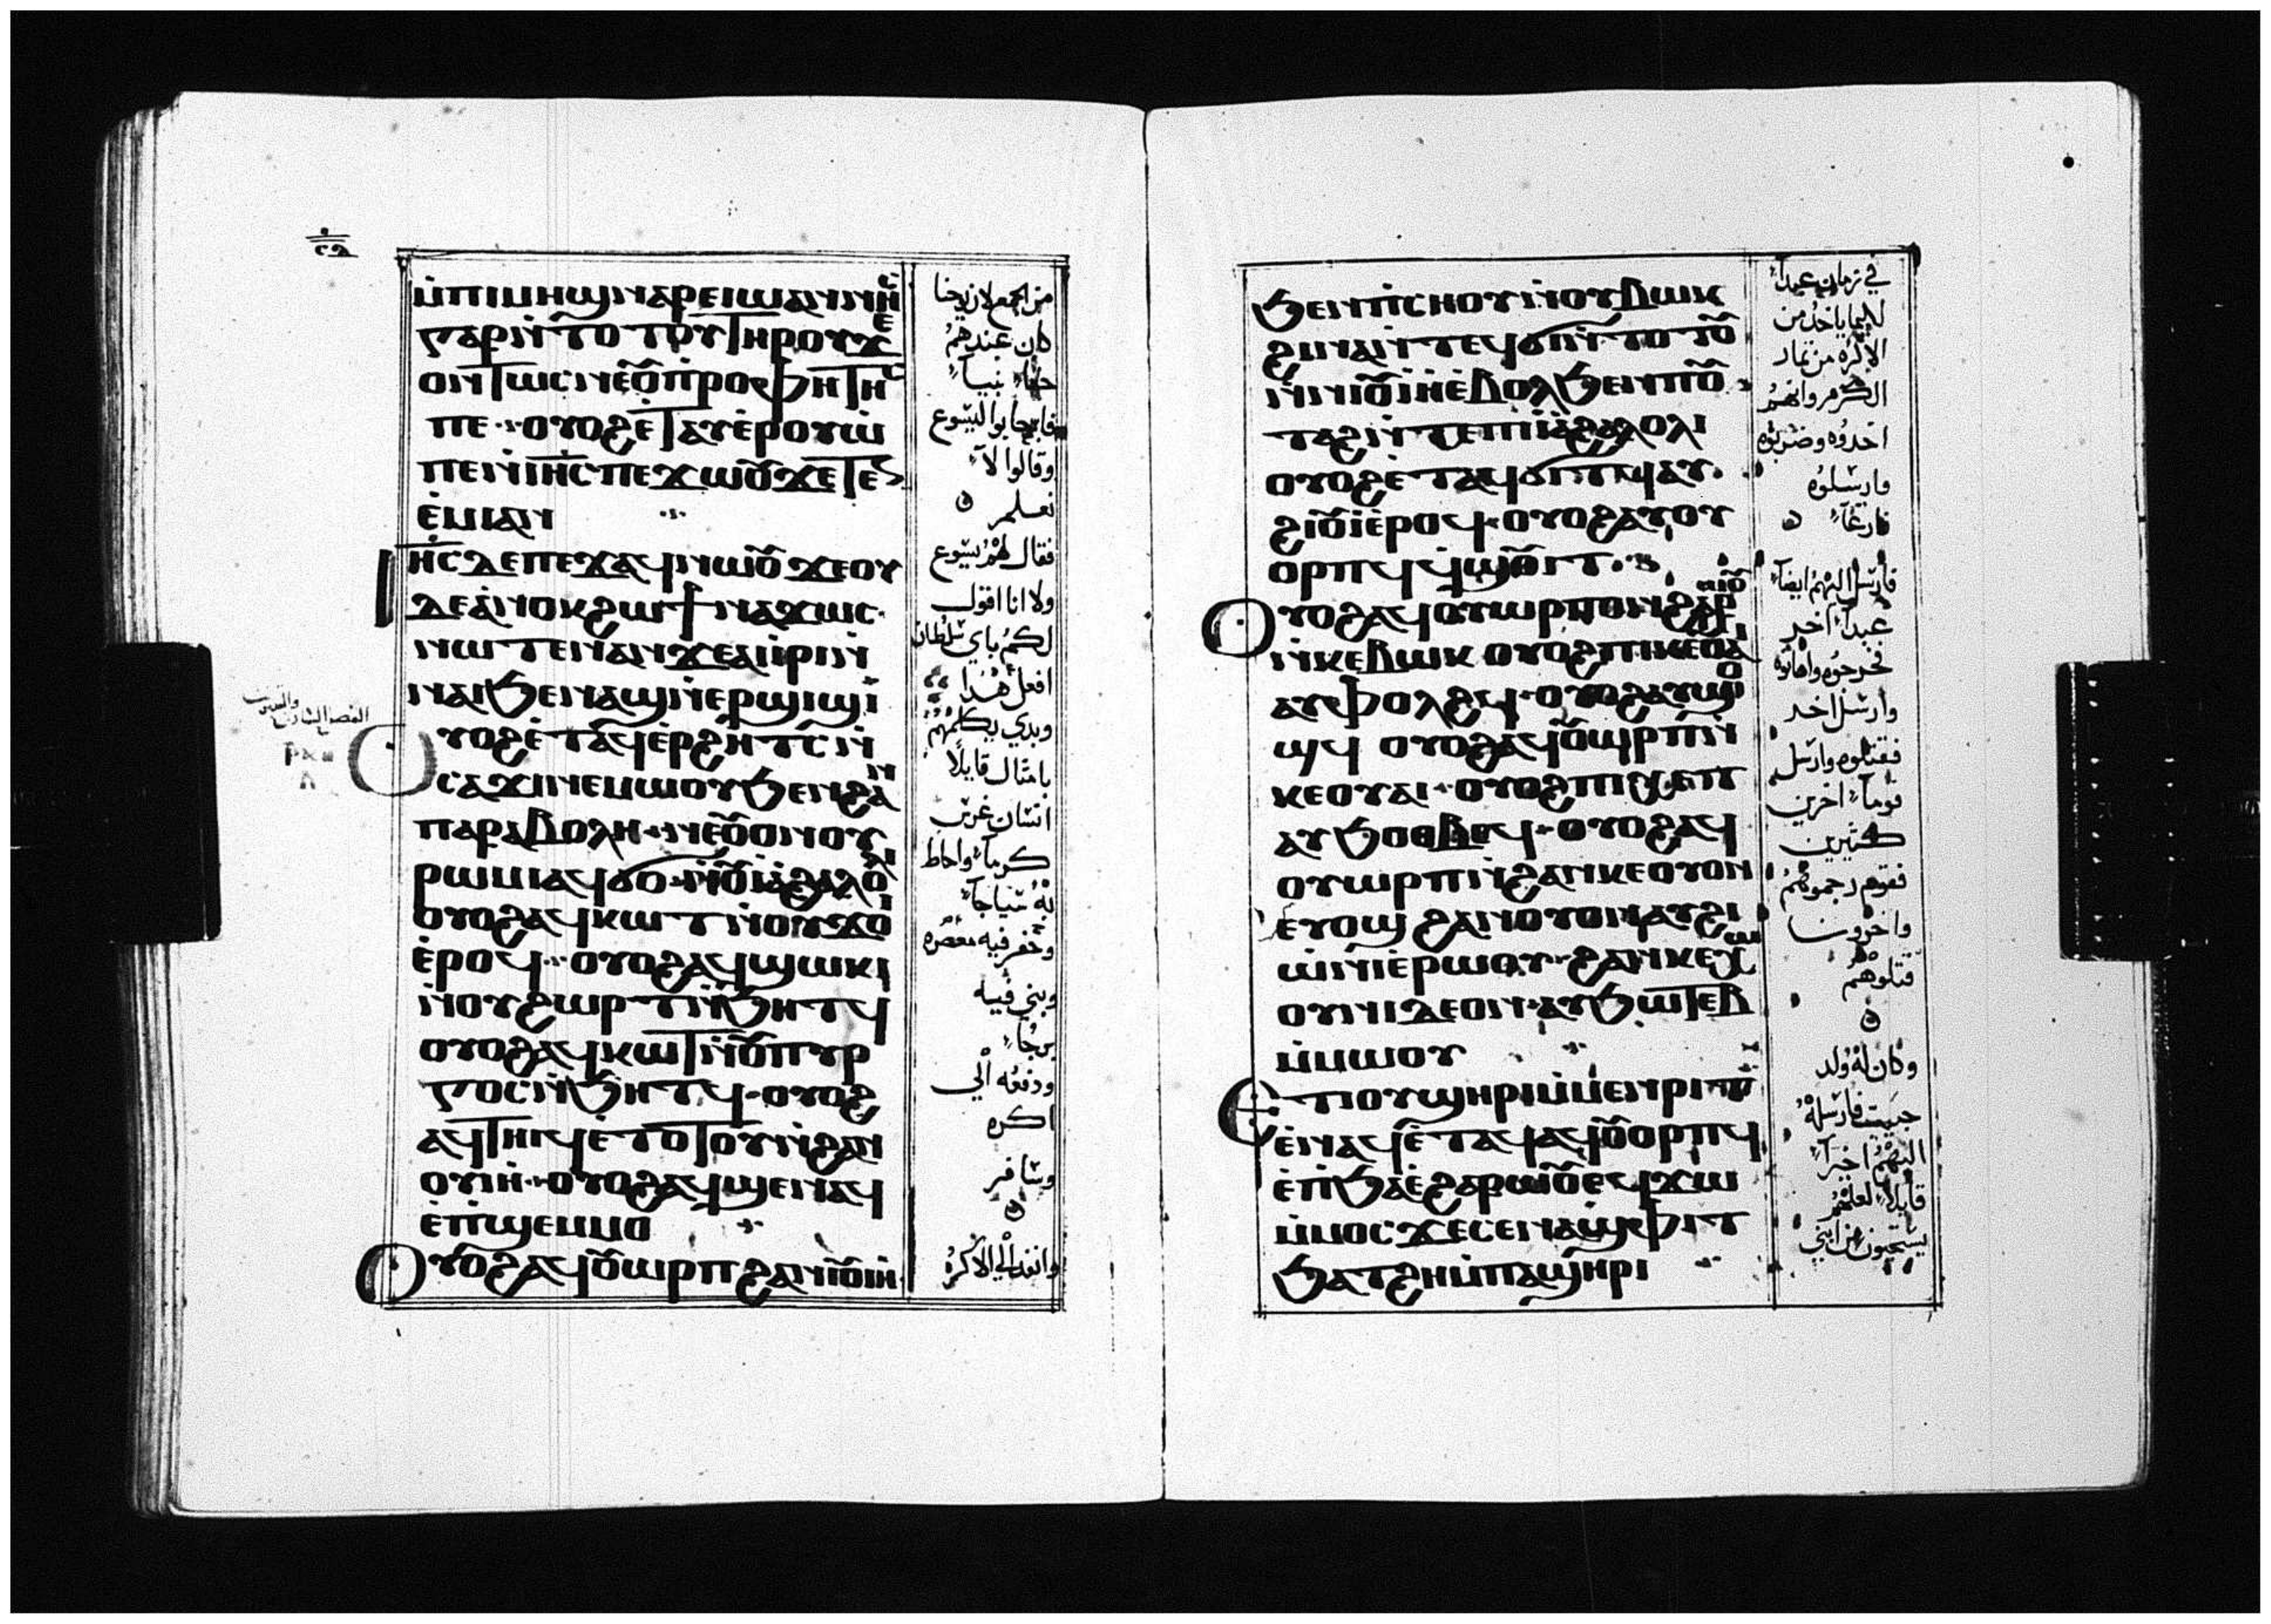 ⲙ̇ⲡⲓⲙⲏϣ ⲛⲁⲣⲉ ⲓⲱⲁⲛⲛⲏⲥ
ⲅⲁⲣ ⲛ̇ⲧⲟⲧⲟⲩ ⲧⲏⲣⲟⲩ ϫⲉ
ⲟⲛⲧⲱⲥ ⲛⲉⲟⲩⲡ̇ⲣⲟⲫⲏⲧⲏⲥ
ⲡⲉ · ⲟⲩⲟϩ ⲉ̇ⲧⲁⲩⲉ̇ⲣⲟⲩⲱ̇
ⲡⲉⲛ ⲓⲏ̅ⲥ̅ ⲡⲉϫⲱⲟⲩ ϫⲉ ⲧⲉⲛ
ⲉ̇ⲙⲓ ⲁⲛ
ⲓⲏ̅ⲥ̅ ⲇⲉ ⲡⲉϫⲁϥ ⲛⲱⲟⲩ ϫⲉ ⲟⲩ
ⲇⲉ ⲁ̇ⲛⲟⲕ ϩⲱ ϯⲛⲁϫⲱⲥ
ⲛⲱⲧⲉⲛ ⲁⲛ ϫⲉ ⲁⲓⲓ̇ⲣⲓ ⲛ̇
ⲛⲁⲓ ϧⲉⲛ ⲁϣ ⲛ̇ⲉⲣϣⲓϣⲓ
ⲟⲩⲟϩ ⲉ̇ⲧⲁϥⲉ̇ⲣϩⲏⲧⲥ ⲛ̇
ⲥⲁϫⲓ ⲛⲉⲙⲱⲟⲩ ϧⲉⲛ ϩⲁⲛ
ⲡⲁⲣⲁⲃⲟⲗⲏ · ⲛⲉⲟⲩⲟⲛ ⲟⲩ
ⲣⲱⲙⲓ ⲁϥϭⲟ ⲛ̇ⲟⲩⲓⲁϩⲁⲗⲟⲗⲓ
ⲟⲩⲟϩ ⲁϥⲕⲱⲧ ⲛ̇ⲟⲩϫⲟⲓ
ⲉ̇ⲣⲟϥ · ⲟⲩⲟϩ ⲁϥϣⲱⲕⲓ
ⲛ̇ⲟⲩϩⲱⲣⲧ ⲛ̇ϧⲏⲧϥ
ⲟⲩⲟϩ ⲁϥⲕⲱⲧ ⲛ̇ⲟⲩⲡⲩⲣ
ⲅⲟⲥ ⲛ̇ϧⲏⲧϥ · ⲟⲩⲟϩ
ⲁϥⲧⲏⲓϥ ⲉ̇ⲧⲟⲧⲟⲩ ⲛ̇ϩⲁⲛ
ⲟⲩⲓⲏ · ⲟⲩⲟϩ ⲁϥϣⲉⲛⲁϥ
ⲉ̇ⲡϣⲉⲙⲙⲟ
ⲟⲩⲟϩ ⲁϥⲟⲩⲱⲣⲡ ϩⲁⲛⲓⲟⲩⲓⲏ
من الجمع لان يوحنا
كان عندهم
حقاً نبياً
فاجابوا ليسوع
وقالوا لا
نعلم
فقال لهم يسوع
ولا انا اقول
لكم باي سلطان
افعل هدا
وبدي يكلمهم
بامثال قايلاً
انسان غرس
كرماً واحاط
به سياجاً
وحفر فيه معصره
وبني فيه
برجاً
ودفعه الي
اكره
وسافر
وانفد الي الاكره
ϧⲉⲛ ⲡ̇ⲥⲏⲟⲩ ⲛ̇ⲟⲩⲃⲱⲕ
ϩⲓⲛⲁ ⲛ̇ⲧⲉϥϭⲓ ⲛ̇ⲧⲟⲧⲟⲩ
ⲛ̇ⲛⲓⲟⲩⲓⲏ ⲉ̇ⲃⲟⲗ ϧⲉⲛ ⲡⲟⲩ
ⲧⲁϩ ⲛ̇ⲧⲉ ⲡⲓⲓⲁϩⲁⲗⲟⲗⲓ
ⲟⲩⲟϩ ⲉ̇ⲧⲁϥϭⲓⲧϥ ⲁⲩ
ϩⲓⲟⲩⲓ ⲉ̇ⲣⲟϥ · ⲟⲩⲟϩ ⲁⲩⲟⲩ
ⲟⲣⲡϥ ⲉϥϣⲟⲩⲓⲧ
ⲟⲩⲟϩ ⲁϥⲟⲩⲱⲣⲡ ⲟⲛ ϩⲁⲣⲱⲟⲩ
ⲛ̇ⲕⲉⲃⲱⲕ ⲟⲩⲟϩ ⲡⲓⲕⲉⲟⲩⲁⲓ
ⲁⲩⲫⲟⲗϩϥ · ⲟⲩⲟϩ ⲁⲩϣⲟ
ϣϥ ⲟⲩⲟϩ ⲁϥⲟⲩⲱⲣⲡ ⲛ̇
ⲕⲉⲟⲩⲁⲓ · ⲟⲩⲟϩ ⲡⲓⲭⲉⲧ
ⲁⲩϧⲟⲑⲃⲉϥ · ⲟⲩⲟϩ ⲁϥ
ⲟⲩⲱⲣⲡ ⲛ̇ϩⲁⲛⲕⲉⲟⲩⲟⲛ
ⲉⲩⲟϣ ϩⲁⲛⲟⲩⲟⲛ ⲁⲩϩⲓ
ⲱ̇ⲛⲓ ⲉ̇ⲣⲱⲟⲩ · ϩⲁⲛⲕⲉⲭⲱ
ⲟⲩⲛⲓ ⲇⲉ ⲟⲛ · ⲁⲩϧⲱⲧⲉⲃ
ⲙ̇ⲙⲱⲟⲩ
ⲉⲧⲓ ⲟⲩϣⲏⲣⲓ ⲙ̇ⲙⲉⲛⲣⲓⲧ
ⲉ̇ⲛⲁϥⲉ̇ⲧⲁϥ ⲁϥⲟⲩⲟⲣⲡϥ
ⲉ̇ⲡϧⲁⲉ̀ ϩⲁⲣⲱⲟⲩ ⲉϥϫⲱ
ⲙ̇ⲙⲟⲥ ϫⲉ ⲥⲉⲛⲁϣⲫⲓⲧ
ϧⲁⲧϩⲏ ⲙ̇ⲡⲁϣⲏⲣⲓ
في زمان عبداً
لكيما ياخد من
الاكره من ثمار
الكرم وانهم
اخدوه وضربوه
وارسلوه
فارغاً
فارسل اليهم ايضاً
عبداً اخر
فجرحوه واهانوه
وارسل اخر
فقتلوه وارسل
قوماً اخرين
كثيرين
فقوم رجموهم
واخرون
قتلوهم
وكان له ولد
حبيب فارسله
اليهم اخيراً
قايلاً لعلهم
يستحيون من ابني